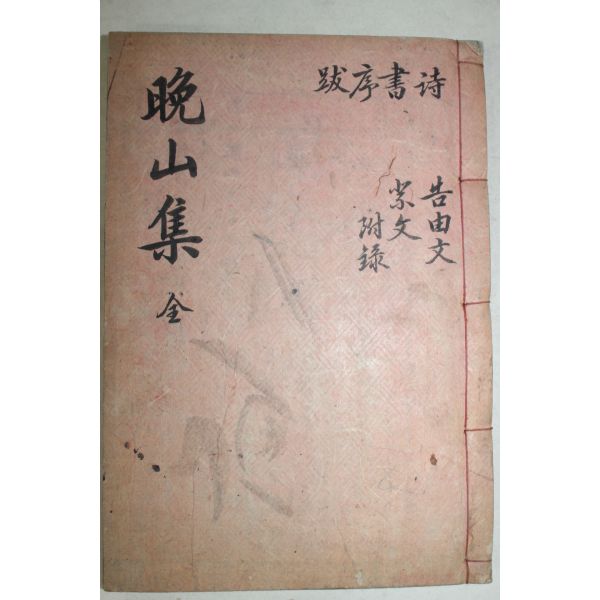 詩書序跋
告由文
祭文
附錄
晩山集
全